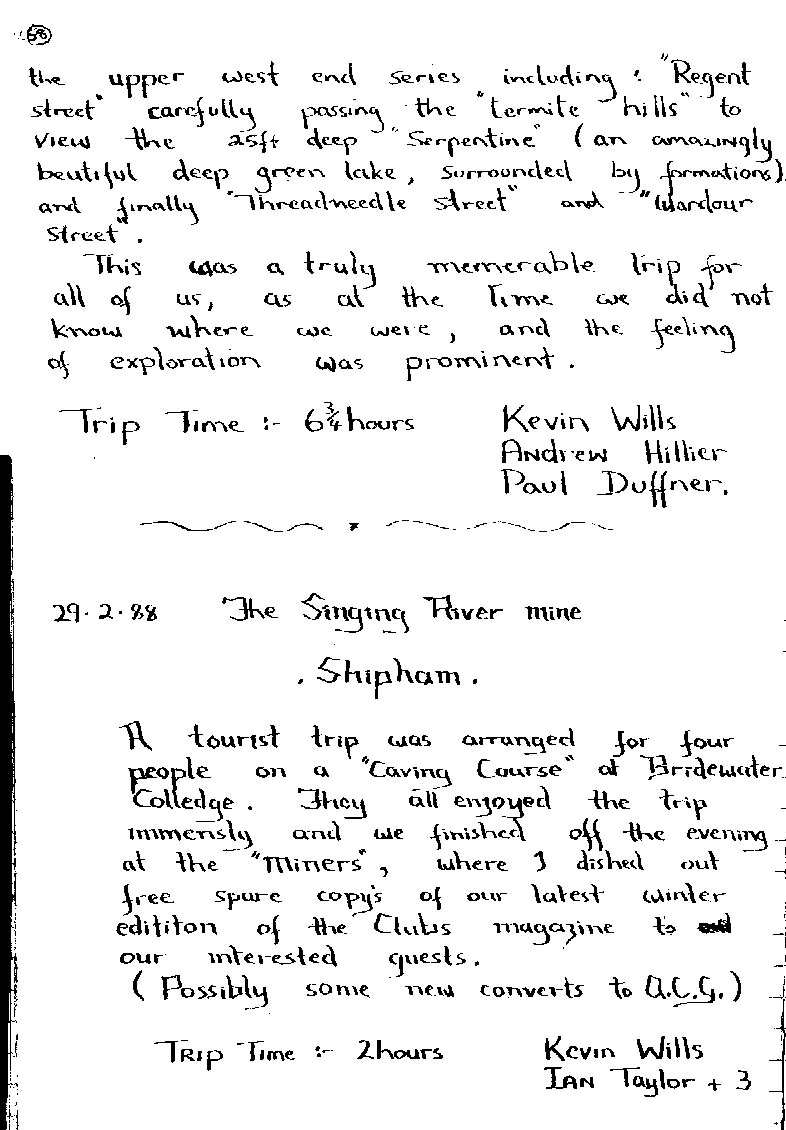 58
the upper west end series including : "Regent
street" carefully passing the "termite hills" to
view the 25ft deep "Serpentine" (an amazingly
beutiful deep green lake, surrounded by formations)
and finally "Threadneedle street" and "Wardour
street".
This was a truly memerable trip for
all of us, as at the time we did not
know where we were, and the feeling
of exploration was prominent.
Trip Time :- 6¾ hours Kevin Wills
Andrew Hillier
Paul Duffner.
29.2.88 The Singing River mine
. Shipham .
A tourist trip was arranged for four
people on a "Caving Course" at Bridewater
Colledge. They all enjoyed the trip
immensly and we finished off the evening
at the "Miners", where I dished out
free spare copy's of our latest winter
edititon of the Clubs magazine to
our interested guests.
(Possibly some new converts to A.C.G.)
Trip Time :- 2hours Kevin Wills
Ian Taylor + 3